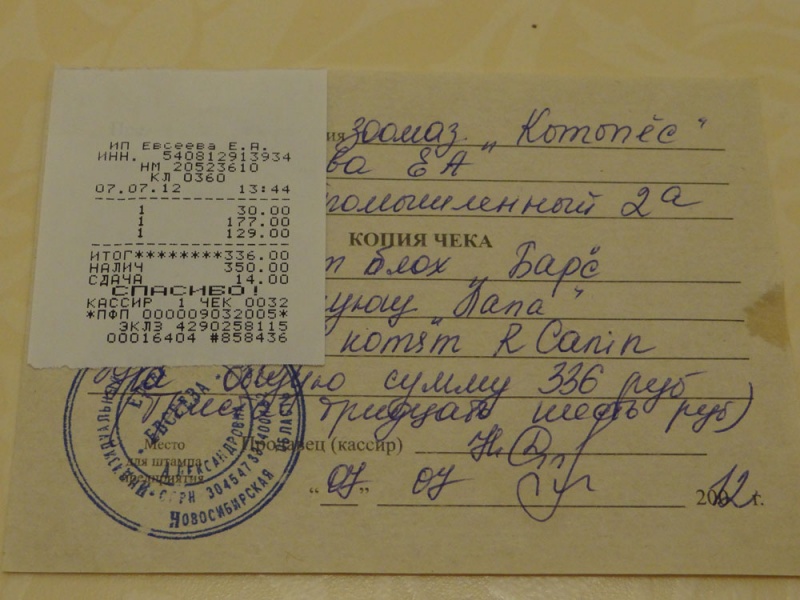 ИП Евсеева Е.А.
ИНН. 540812913934
НМ 20523610
КЛ 0360
07.07.12 13:44
1 30.00
1 177.00
1 129.00
ИТОГ********336.00
НАЛИЧ 350.00
СДАЧА 14.00
СПАСИБО!
КАССИР 1 ЧЕК 0032
*ПФП 000009032005*
ЭКЛЗ 4290258115
00016404 #858436
зоомаг. „Котопёс"
ва ЕА
2а
КОПИЯ ЧЕКА
блох „Барс"
"Лапа"
котят R Canin
На общую сумму 336 руб
(Триста тридцать шесть руб)
Продавец (кассир)
Место
для штампа
предприятия
ЕВСЕЕВА
АЛЕКСАНДРОВНА
НОВОСИБИРСКАЯ ОБЛАСТЬ
"07" 07 2012 г.